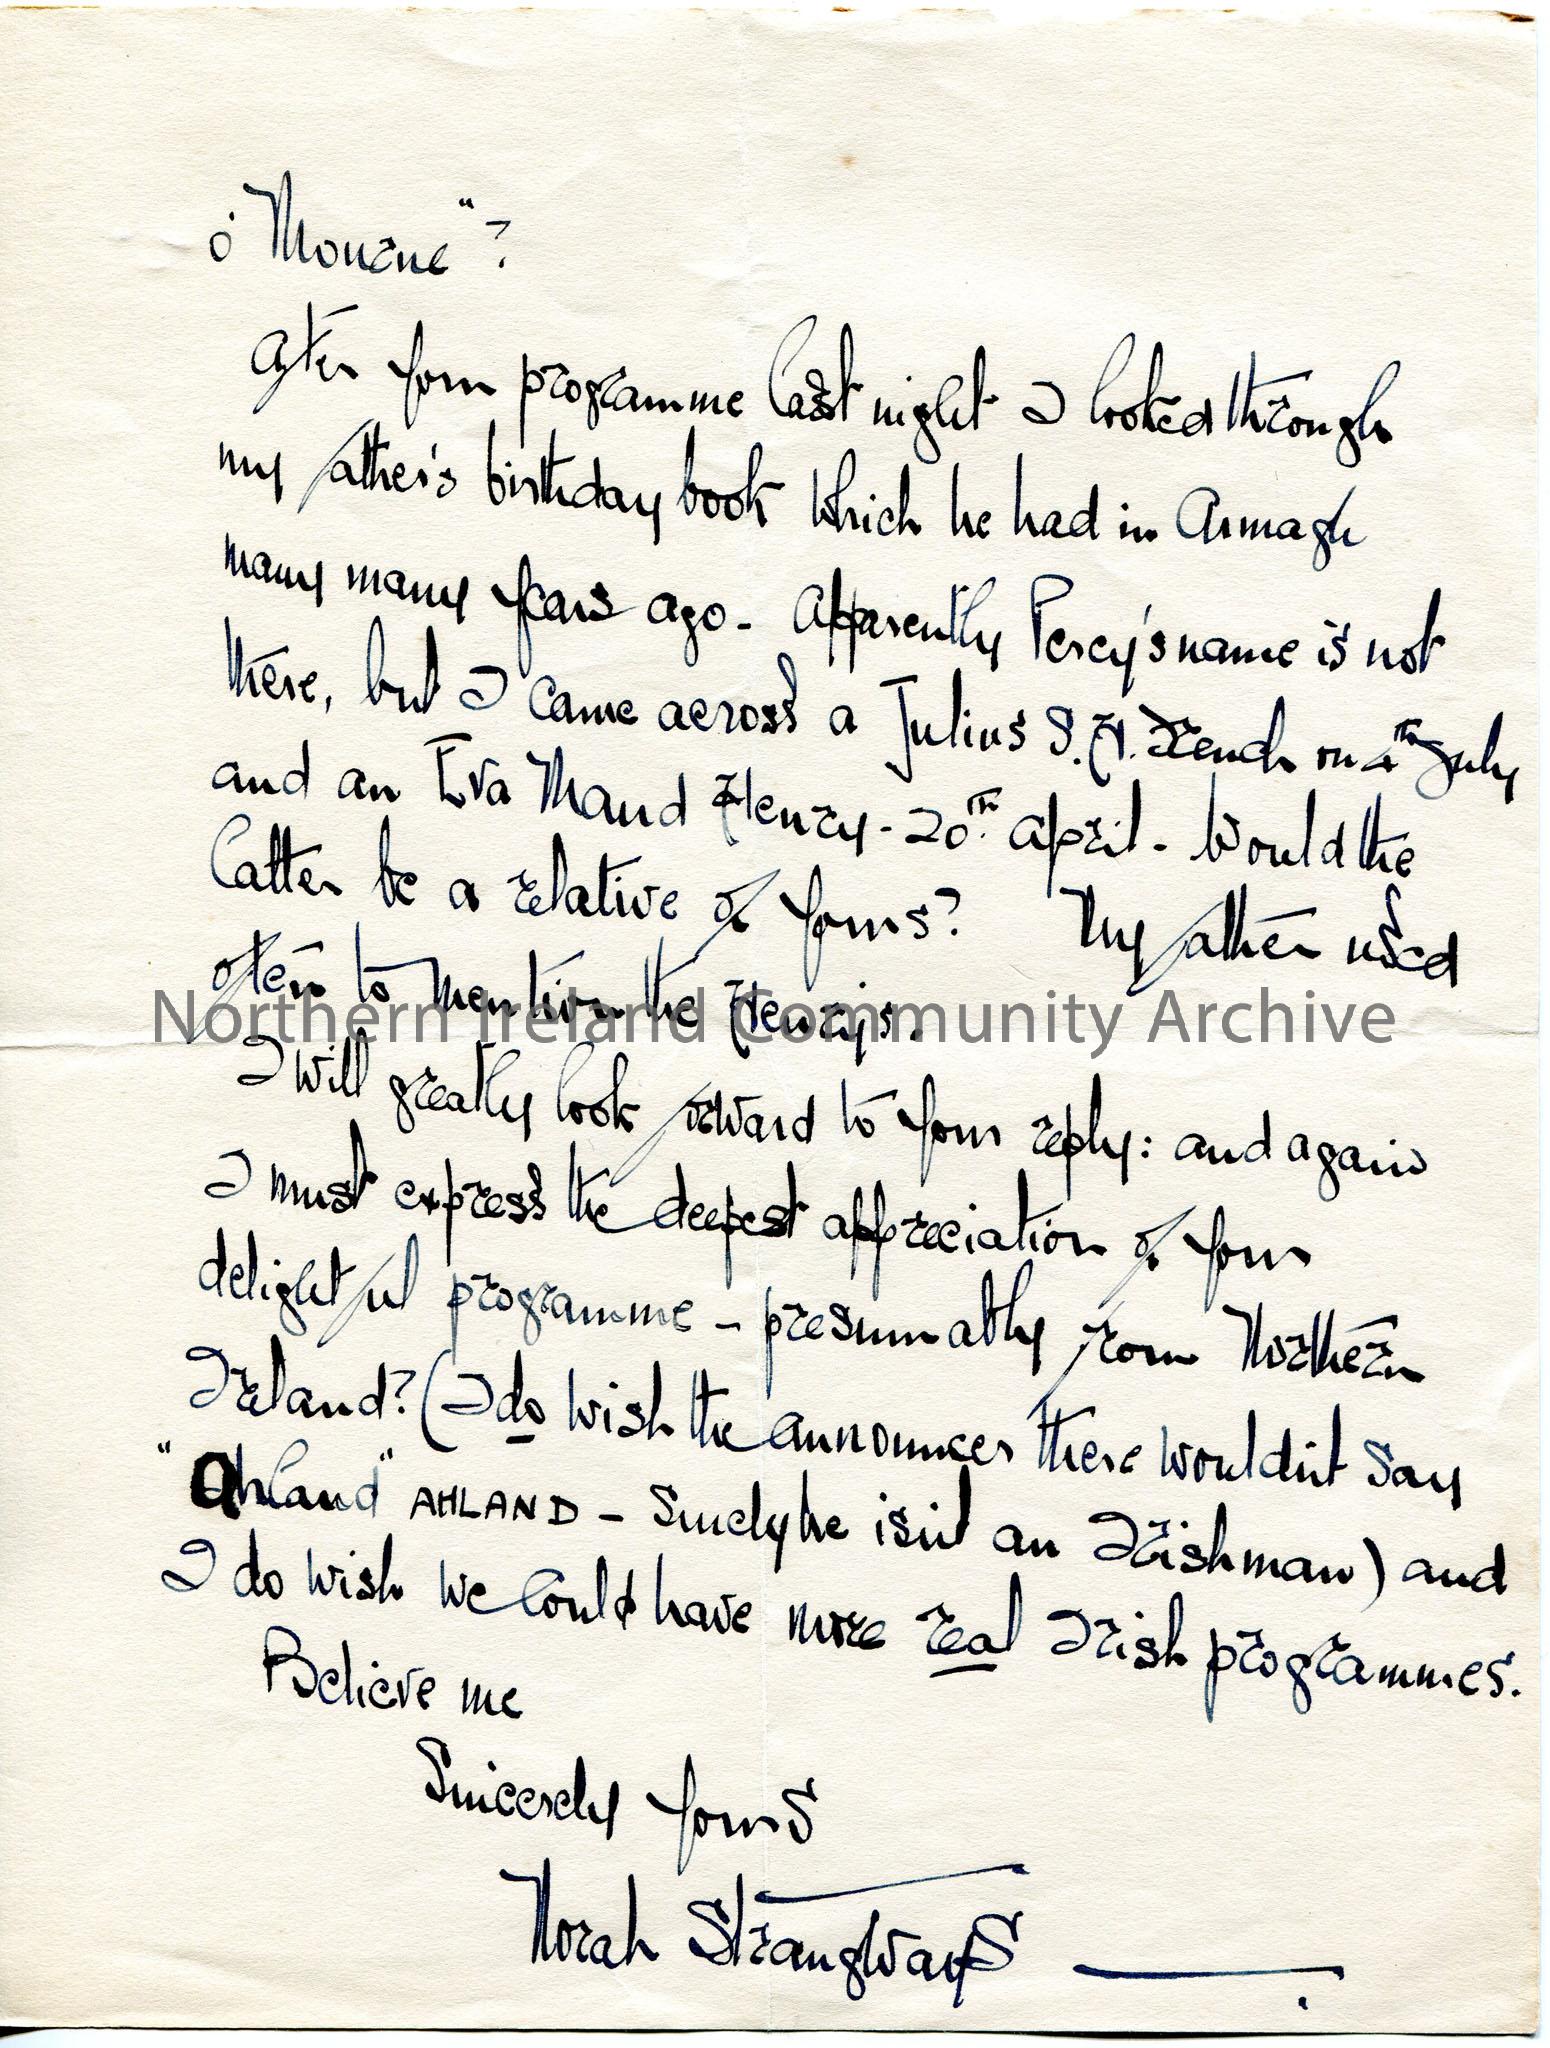 o' Mourne"?
After your programme last night I looked through
my father's birthday book which he had in Armagh
many many years ago - apparently Percy's name is not
there, but I came across a Julius S. A. Trench on 4th July
and an Eva Maud Henry - 20th April - Would the
latter be a relative of yours? My father used
often to mention the Henry's.
Northern Ireland Community Archive
I will greatly look forward to your reply: and again
I must express the deepest appreciation of your
delightful programme - presumably from Northern
Ireland? (I do wish the announcer there wouldn't say
"Ahland" AHLAND - Surely he isn't an Irishman) and
I do wish we could have more real Irish programmes.
Believe me
Sincerely yours
Norah Strangways